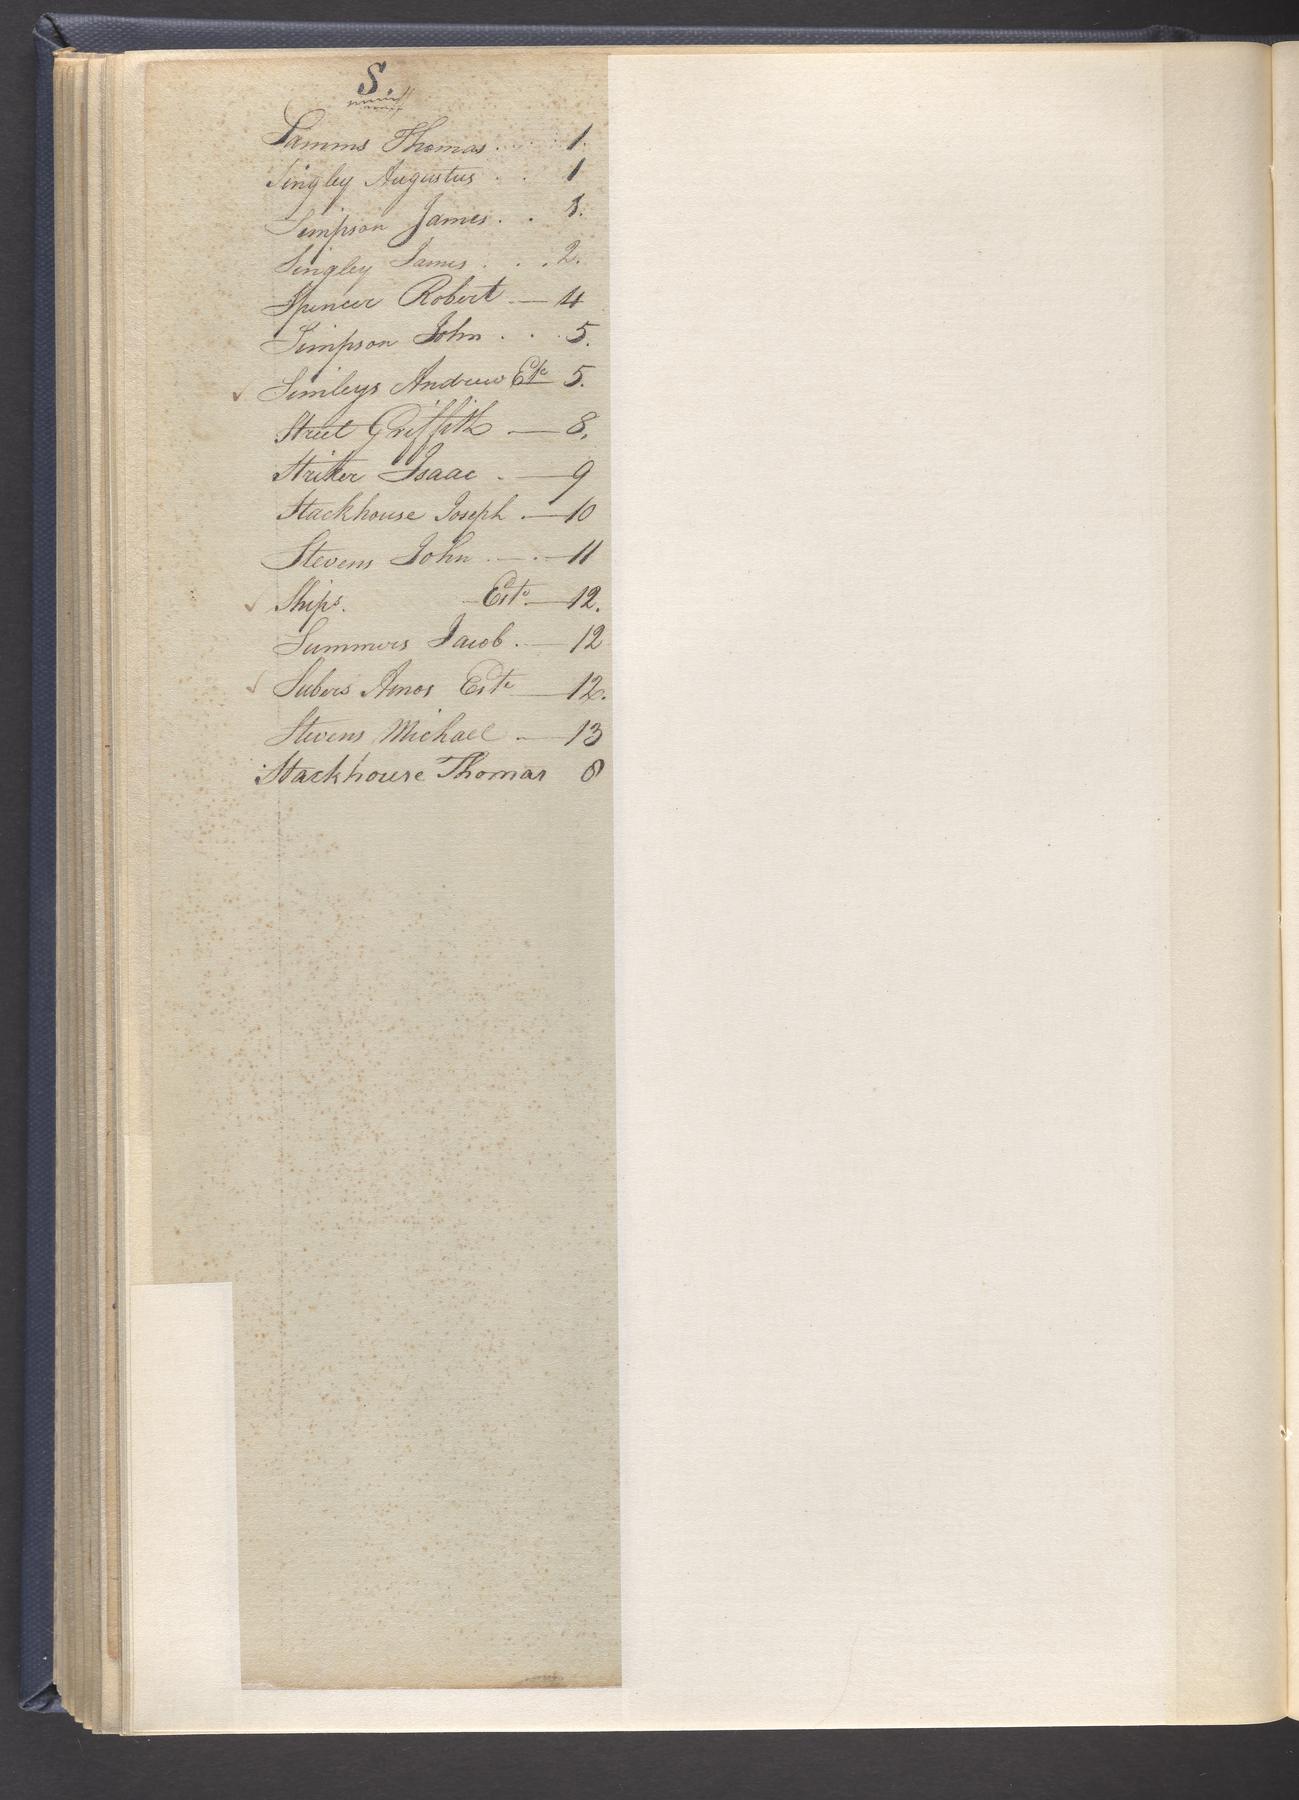 S.
Samms Thomas . . . . 1.
Singley Augustus . . 1
Simpson James . . 1.
Singley James . . . 2.
Spencer Robert — 4
Simpson John . . . 5.
✓ Simleys Andrew Este 5.
Street Griffith — 8.
Striker Isaac . — 9
Stackhouse Joseph . — 10
Stevens John — . — 11
✓ Ships. — Este — 12.
Summers Jacob . — 12
✓ Subers Amos Este — 12.
Stevens Michael — 13
Stackhouse Thomas 8